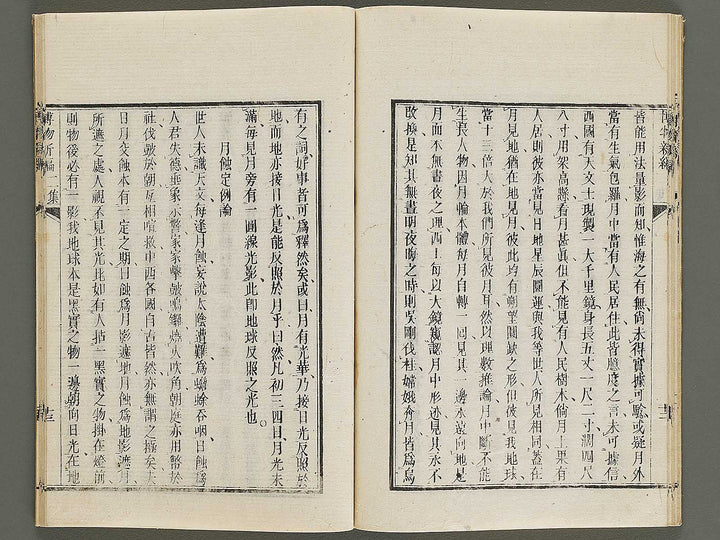 皆能用法量影而知惟海之有無尚未得實據可驗或疑月外
當有生氣包羅月中當有人民居住此皆臆度之言未可據信
西國有天文士現製一大千里鏡身長五丈一尺二寸濶四尺
八寸用架高懸看月甚眞但不能見有人民樹木倘月上果有
人居則彼亦當見日地星辰圜運與我等世人所見相同蓋在
月見地猶在地見月彼此均有朔望圓缺之形但彼見我地球
當十三倍大於我們所見彼月耳然以理數推論月中斷不能
生長人物因月輪本體每月自轉一回見其一邊永遠向地是
月而不無晝夜之理西士每以大鏡窺認月中形迹見其永不
改換是知其無晝明夜晦之時則吳剛伐桂嫦娥奔月皆爲烏
有之詞好事者可爲釋然矣或曰月有光華乃接日光反照於
地而地亦接日光是能反照於月乎曰然凡初三四日月光未
滿每見月旁有一圓線光影此卽地球反照之光也
月蝕定例論
世人未識天文每逢月蝕妄說太陰遭難爲蟾蜍吞咽日蝕爲
人君失德垂象示警家家擊鼓鳴鑼焚火吹角朝庭亦用幣於
社伐鼓於朝互相喧救中西各國自古皆然亦無謂之極矣夫
日月交蝕本有一定之期日蝕爲月影遮地月蝕爲地影遮月
所遮之處人視不見其光此如有人拈一黑實之物掛在燈前
則物後必有一影我地球本是黑實之物一邊朝向日光在地
博物新編
二集
十三